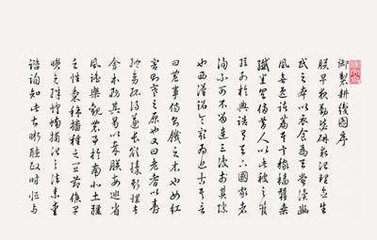 御製耕織圖序
朕早夜勤毖研求治理念生
民之本以衣食為天嘗讀豳
風無逸諸篇其言稼穡蠶桑
纖悉具備昔人以此被之管
弦列於典誥有天下國家者
洵不可不留連三復於其際
也西漢詔令最為近古其言
曰農事傷則飢之本也女紅
害則寒之原也又曰老耆以壽
終幼孤得遂長欲臻斯理者
舍本務其曷以哉朕每巡省
風謠樂觀農事於南北土疆
之性黍稌播種之宜節候早
晚之殊蝗蝻捕治之法素愛
諮詢知此甚晰聽政時恆與